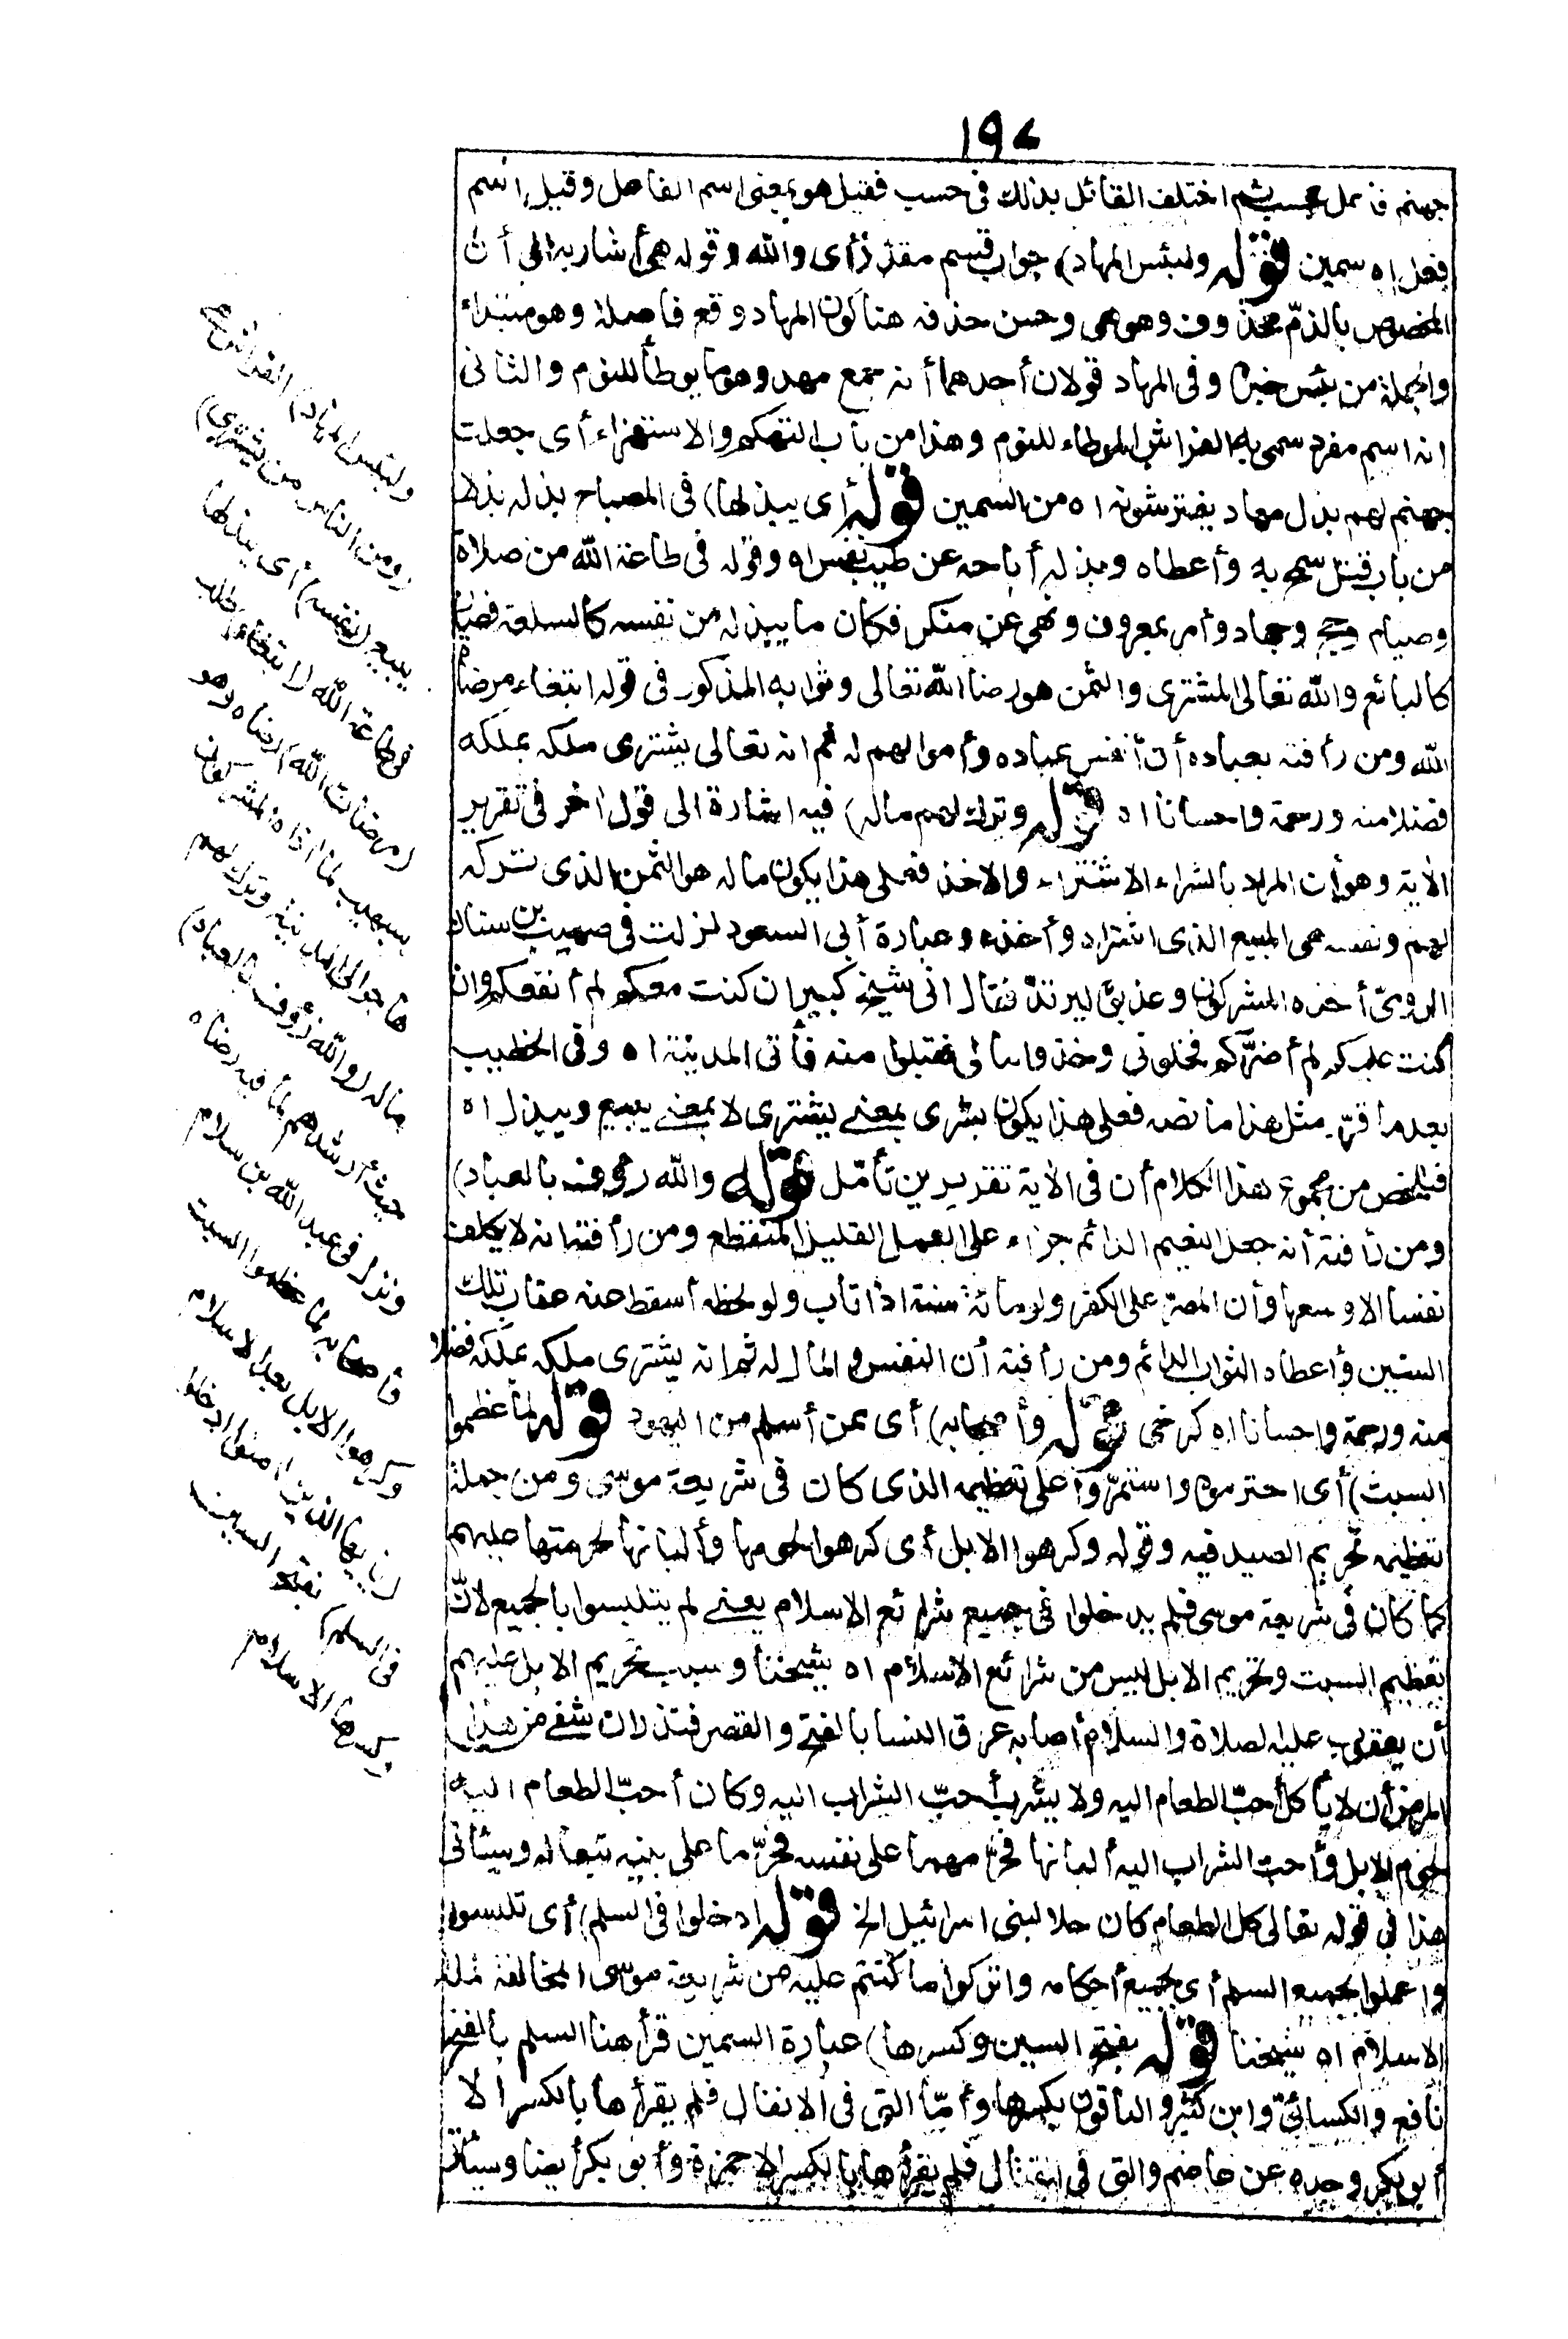 ١٩٧
جهنم فاعل حسب ثم اختلف القائل بذلك فى حسب فقيل هو بمعنى اسم الفاعل وقيل اسم
فعل اه سمين قوله ولبئس المهاد) جواب قسم مقدر أى والله وقوله هى أشار به الى أن
المخصوص بالذمّ محذوف وهو هى وحسن حذفه هنا كون المهاد وقع فاصلة وهو مبتداء
والجملة من بئس خبره وفى المهاد قولان أحدهما أنه جمع مهد وهو ما يوطأ للنوم والثانى
انه اسم مفرد سمى به الفراش الموطاء للنوم وهذا من باب التهكم والاستهزاء أى جعلت
جهنم لهم بدل مهاد يفترشونه اه من السمين قوله أى يبذلها) فى المصباح بذله بذلا
من باب قتل سمح به وأعطاه وبذله أباحه عن طيب نفس اه وقوله فى طاعة الله من صلاة
وصيام وحج وجهاد وأمر بمعروف ونهى عن منكر فكان ما يبذله من نفسه كالسلعة فصار
كالبائع والله تعالى المشترى والثمن هو رضا الله تعالى وثوابه المذكور فى قوله ابتغاء مرضاة
الله ومن رأفته بعباده أن أنفس عباده وأموالهم له ثم انه تعالى يشترى ملكه بملكه
فضلا منه ورحمة واحسانا اه قوله وترك لهم ماله) فيه اشارة الى قول اخر فى تقرير
الأية وهو أن المراد بالشراء الاشتراء والاخذ فعلى هذا يكون ماله هو الثمن الذى تركه
لهم ونفسه هى المبيع الذى اشتراه وأخذه وعبارة أبى السعود نزلت فى صهيب بن سنان
الرومىّ أخذه المشركون وعذبوه ليرتد فقال انى شيخ كبير ان كنت معكم لم أنفعكم وان
كنت عليكم لم أضرّكم فخلونى وخذوا مالى فقبلوا منه فأتى المدينة اه وفى الخطيب
بعد ما قرّر مثل هذا ما نصه فعلى هذا يكون يشرى بمعنى يشترى لا بمعنى يبيع ويبذل اه
فتلخص من مجموع هذا الكلام أن فى الأية تقديرين تأمّل قوله والله رؤوف بالعباد)
ومن رأفته أنه جعل النعيم الدائم جزاء على العمل القليل المنقطع ومن رأفته انه لا يكلف
نفسا الا وسعها وأن المصرّ على الكفر ولو مائة سنة اذا تاب ولو لحظه أسقط عنه عقاب تلك
السنين وأعطاه الثواب الدائم ومن رأفته أن النفس والمال له ثم انه يشترى ملكه بملكه فضلا
منه ورحمة واحسانا اه كرخى قوله وأصحابه) أى ممن أسلم من اليهود قوله لما عظموا
السبت) أى احترموه واستمرّوا على تعظيمه الذى كان فى شريعة موسى ومن جملة
تعظيمه تحريم الصيد فيه وقوله وكرهوا الابل أى كرهوا لحومها وألبانها لحرمتها عليهم
كما كان فى شريعة موسى فلم يدخلوا فى جميع شرائع الاسلام يعنى لم يتلبسوا بالجميع لانّ
تعظيم السبت وتحريم الابل ليس من شرائع الاسلام اه شيخنا وسبب تحريم الابل عليهم
أن يعقوب عليه الصلاة والسلام أصابه عرق النسا بالفتح والقصر فنذر ان شفى من هذا
المرض أن لا يأكل أحبّ الطعام اليه ولا يشرب أحبّ الشراب اليه وكان أحبّ الطعام اليه
لحوم الابل وأحب الشراب اليه ألبانها فحرّمهما على نفسه فحرّما على بنيه تبعا له وسيأتى
هذا فى قوله تعالى كل الطعام كان حلا لبنى اسرائيل الخ قوله ادخلوا فى السلم) أى تلبسوا
واعملوا بجميع السلم أى بجميع أحكامه واتركوا ما كنتم عليه من شريعة موسى المخالفة لملة
الاسلام اه شيخنا قوله بفتح السين وكسرها) عبارة السمين قرأ هنا السلم بالفتح
نافع والكسائىّ وابن كثير والباقون بكسرها وأمّا التى فى الانفال فلم يقرأها بالكسر الا
أبو بكر وحده عن عاصم والتى فى القتال فلم يقرأها بالكسر الا حمزة وأبو بكر أيضا وسيأتى
ولبئس المهاد) الفراش هى
(ومن الناس من يشترى)
يبيع (نفسه) أى يبذلها
فى طاعة الله (ابتغاء) طلب
(مرضات الله) رضاه وهو
صهيب لما اذاه المشركون
هاجر الى المدينة وترك لهم
ماله (والله رؤوف بالعباد)
حيث أرشدهم لما فيه رضاه
ونزل فى عبد الله بن سلام
وأصحابه لما عظموا السبت
وكرهوا الابل بعد الاسلام
(يايها الذين امنوا ادخلوا
فى السلم) بفتح السين
وكسرها الاسلام